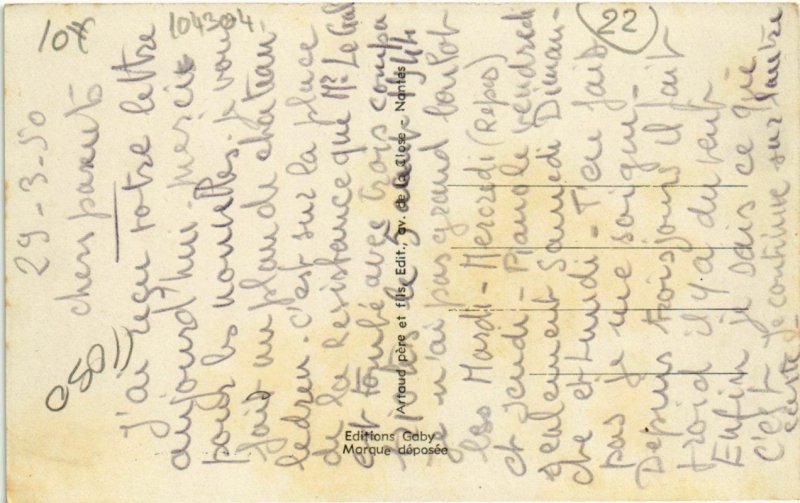 10F
104304.
22
0501
29-3-50
chers parents
J'ai reçu votre lettre
aujourd'hui. merci
pour les nouvelles. je vous
fait un plan de chateau
ledren. c'est sur la place
de la Resistance que Mr Le Gal
est tombé avec trois compa
le 5
je n'ai pas grand boulot
les Mardi - Mercredi (Repos)
et Jeudi - Piano le vendredi
seulement Samedi Diman-
che et Lundi - T'en fait
pas je me soigne -
Depuis trois jours il fait
froid il y a du vent
Enfin je sais ce que
c'est Je continue sur l'autre
carte
Artaud père et fils Edit., av. de la Close - Nantes
Editions Gaby
Marque déposée